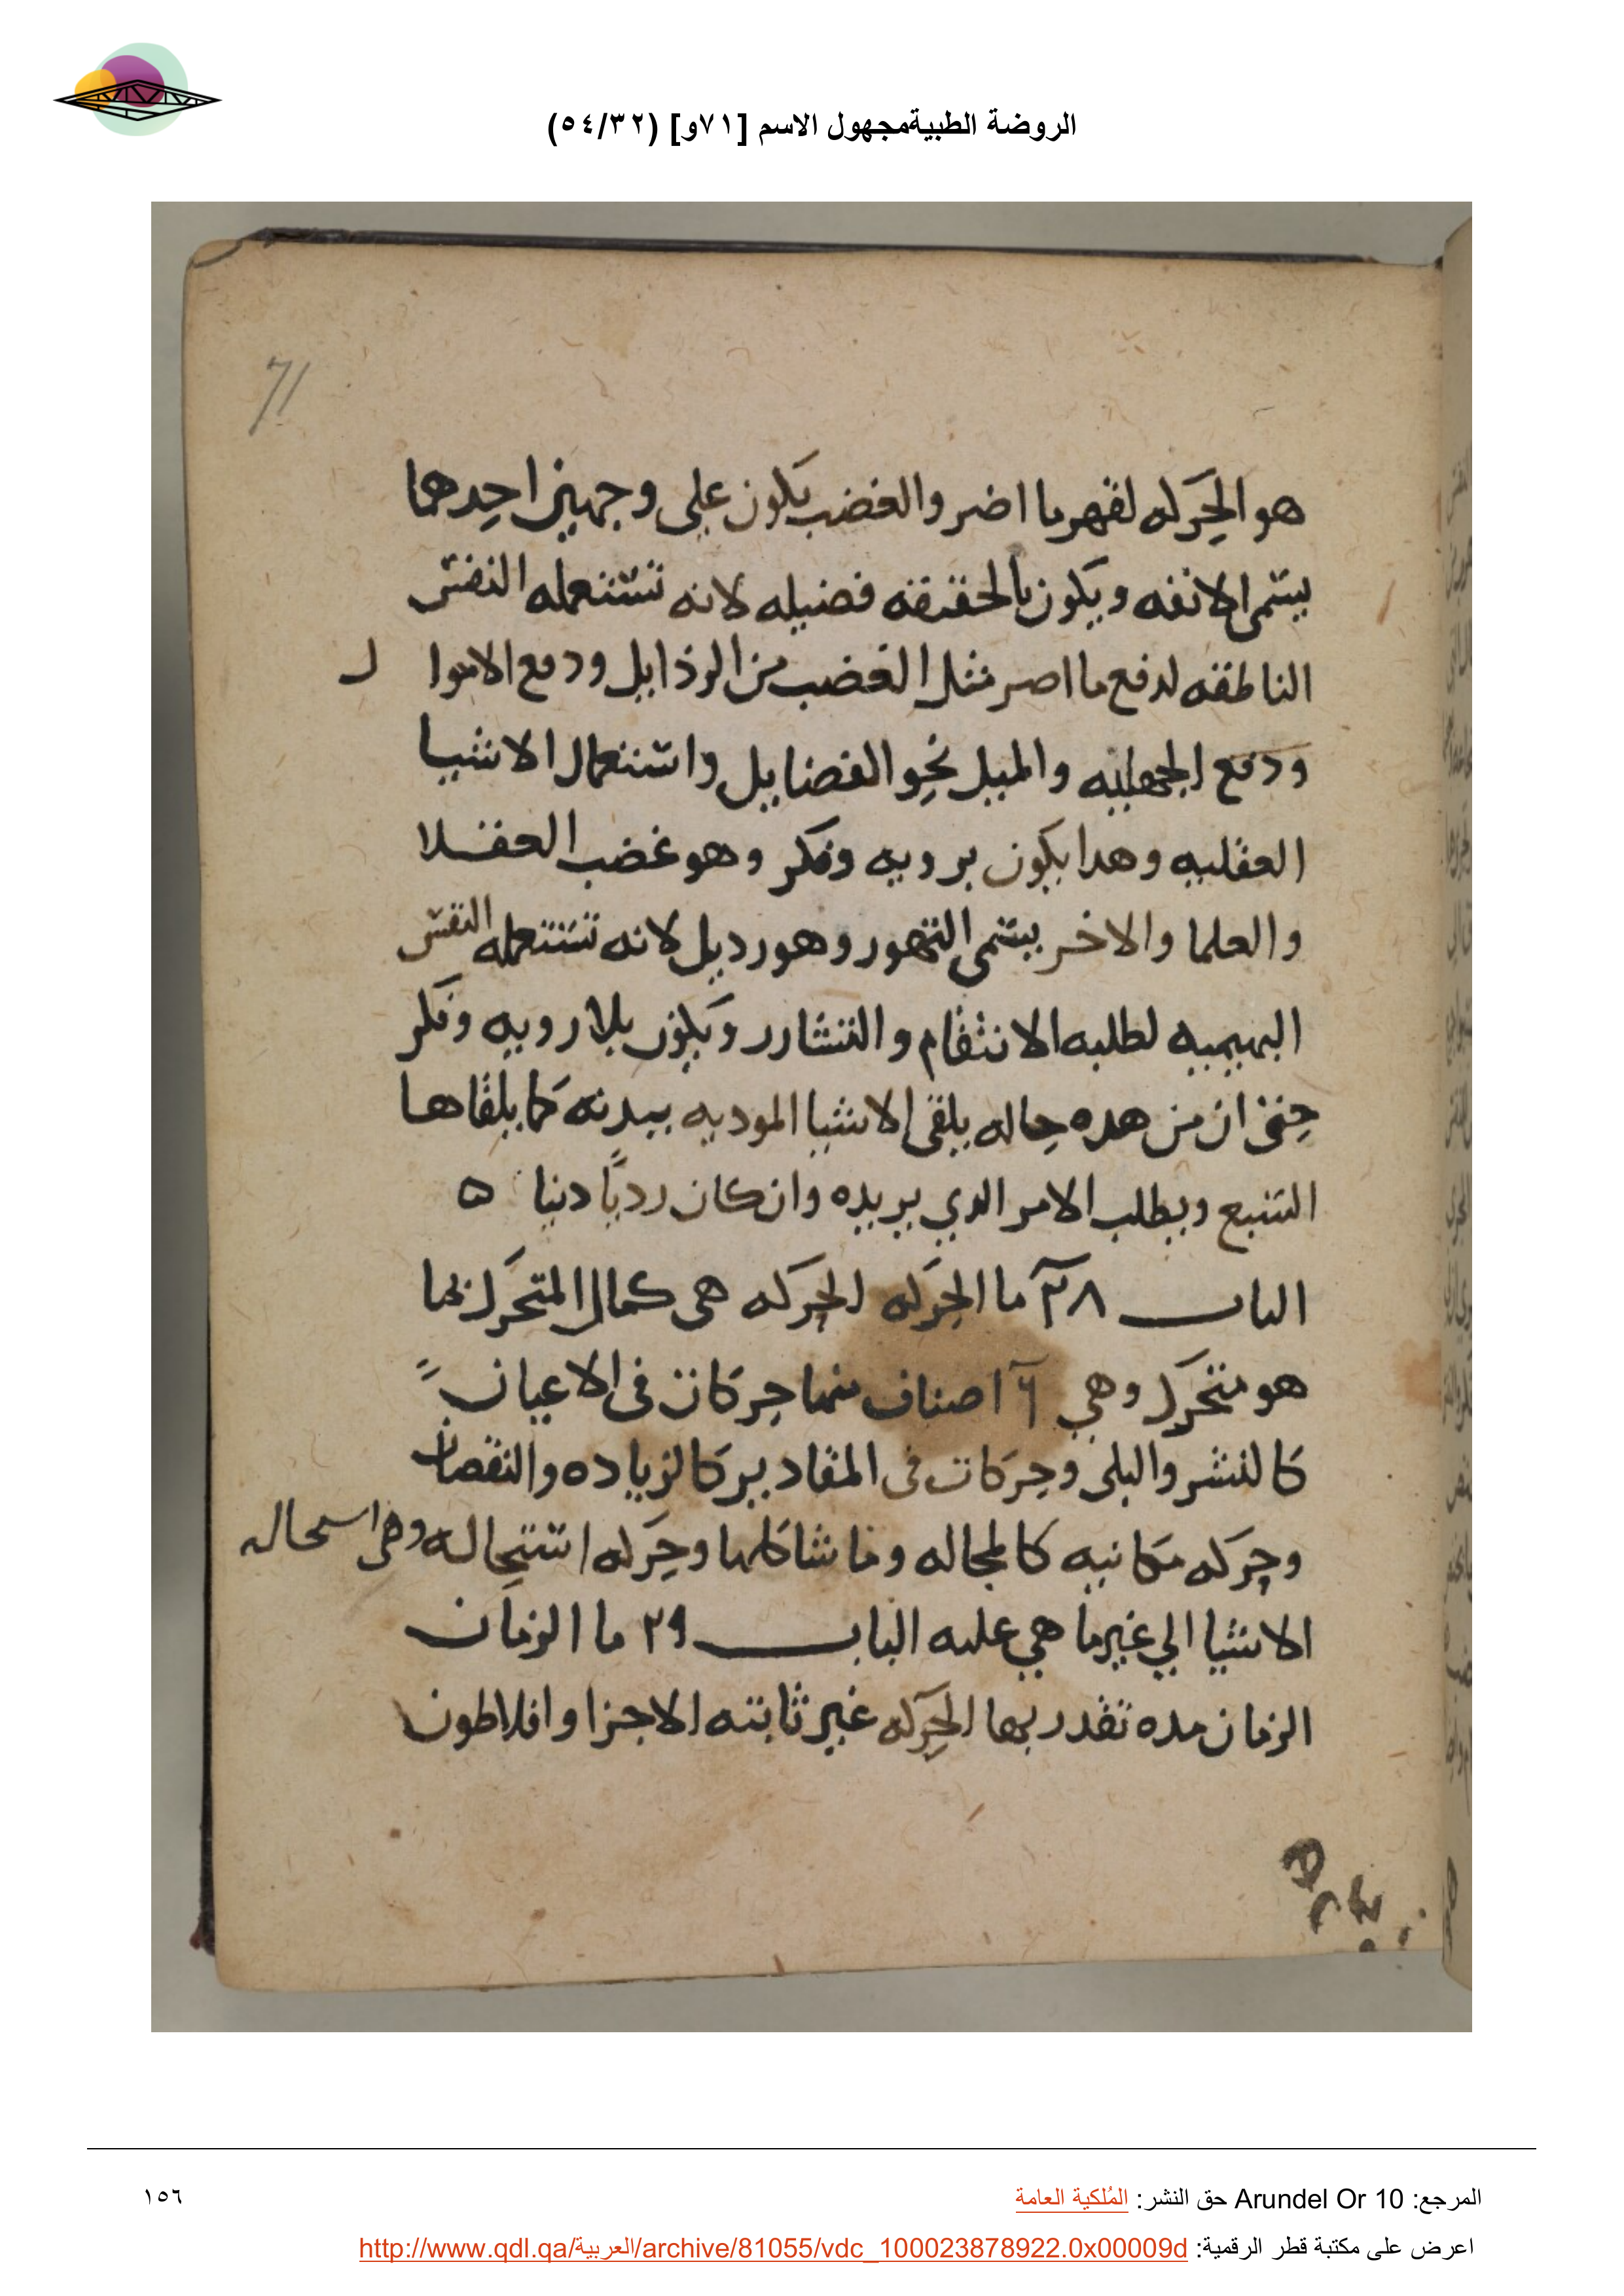 الروضة الطبيةمجهول الاسم [٧١و] (٥٤/٣٢)
71
هو الحركه لقهر ما اضر والغضب يكون على وجهين احدهما
يسمى الانفه ويكون بالحقيقه فضيله لانه تستعمله النفس
الناطقه لدفع ما اضر مثل الغضب من الرذايل ودفع الاموا ل
ودفع الجهليه والميل نحو الفضايل واستعمال الاشيا
العقليه وهدا يكون برويه وفكر وهو غضب العقلا
والعلما والاخر يسمى التهور وهو رديل لانه تستعمله النفس
البهيميه لطلبه الانتقام والتشارر ويكون بلا رويه وفكر
حتى ان من هده حاله يلقى الاشيا الموديه ببدنه كما يلقاها
السبع ويطلب الامر الدي يريده وان كان رديًا دنيا ه
الباب ٢٨ ما الحركه الحركه هى كمال المتحرك بما
هو متحرك وهي ٦ اصناف منها حركات فى الاعيان
كالنشر والبلى وحركات فى المقادير كالزياده والنقصان
وحركه مكانيه كالمجاله وما شاكلها وحركه استحاله وهى استحاله
الاشيا الي غير ما هي عليه الباب ٢٩ ما الزمان
الزمان مده تقدر بها الحركه غير ثابته الاجزا وافلاطون
المرجع: Arundel Or 10 حق النشر: المُلكية العامة
١٥٦
اعرض على مكتبة قطر الرقمية: http://www.qdl.qa/العربية/archive/81055/vdc_100023878922.0x00009d